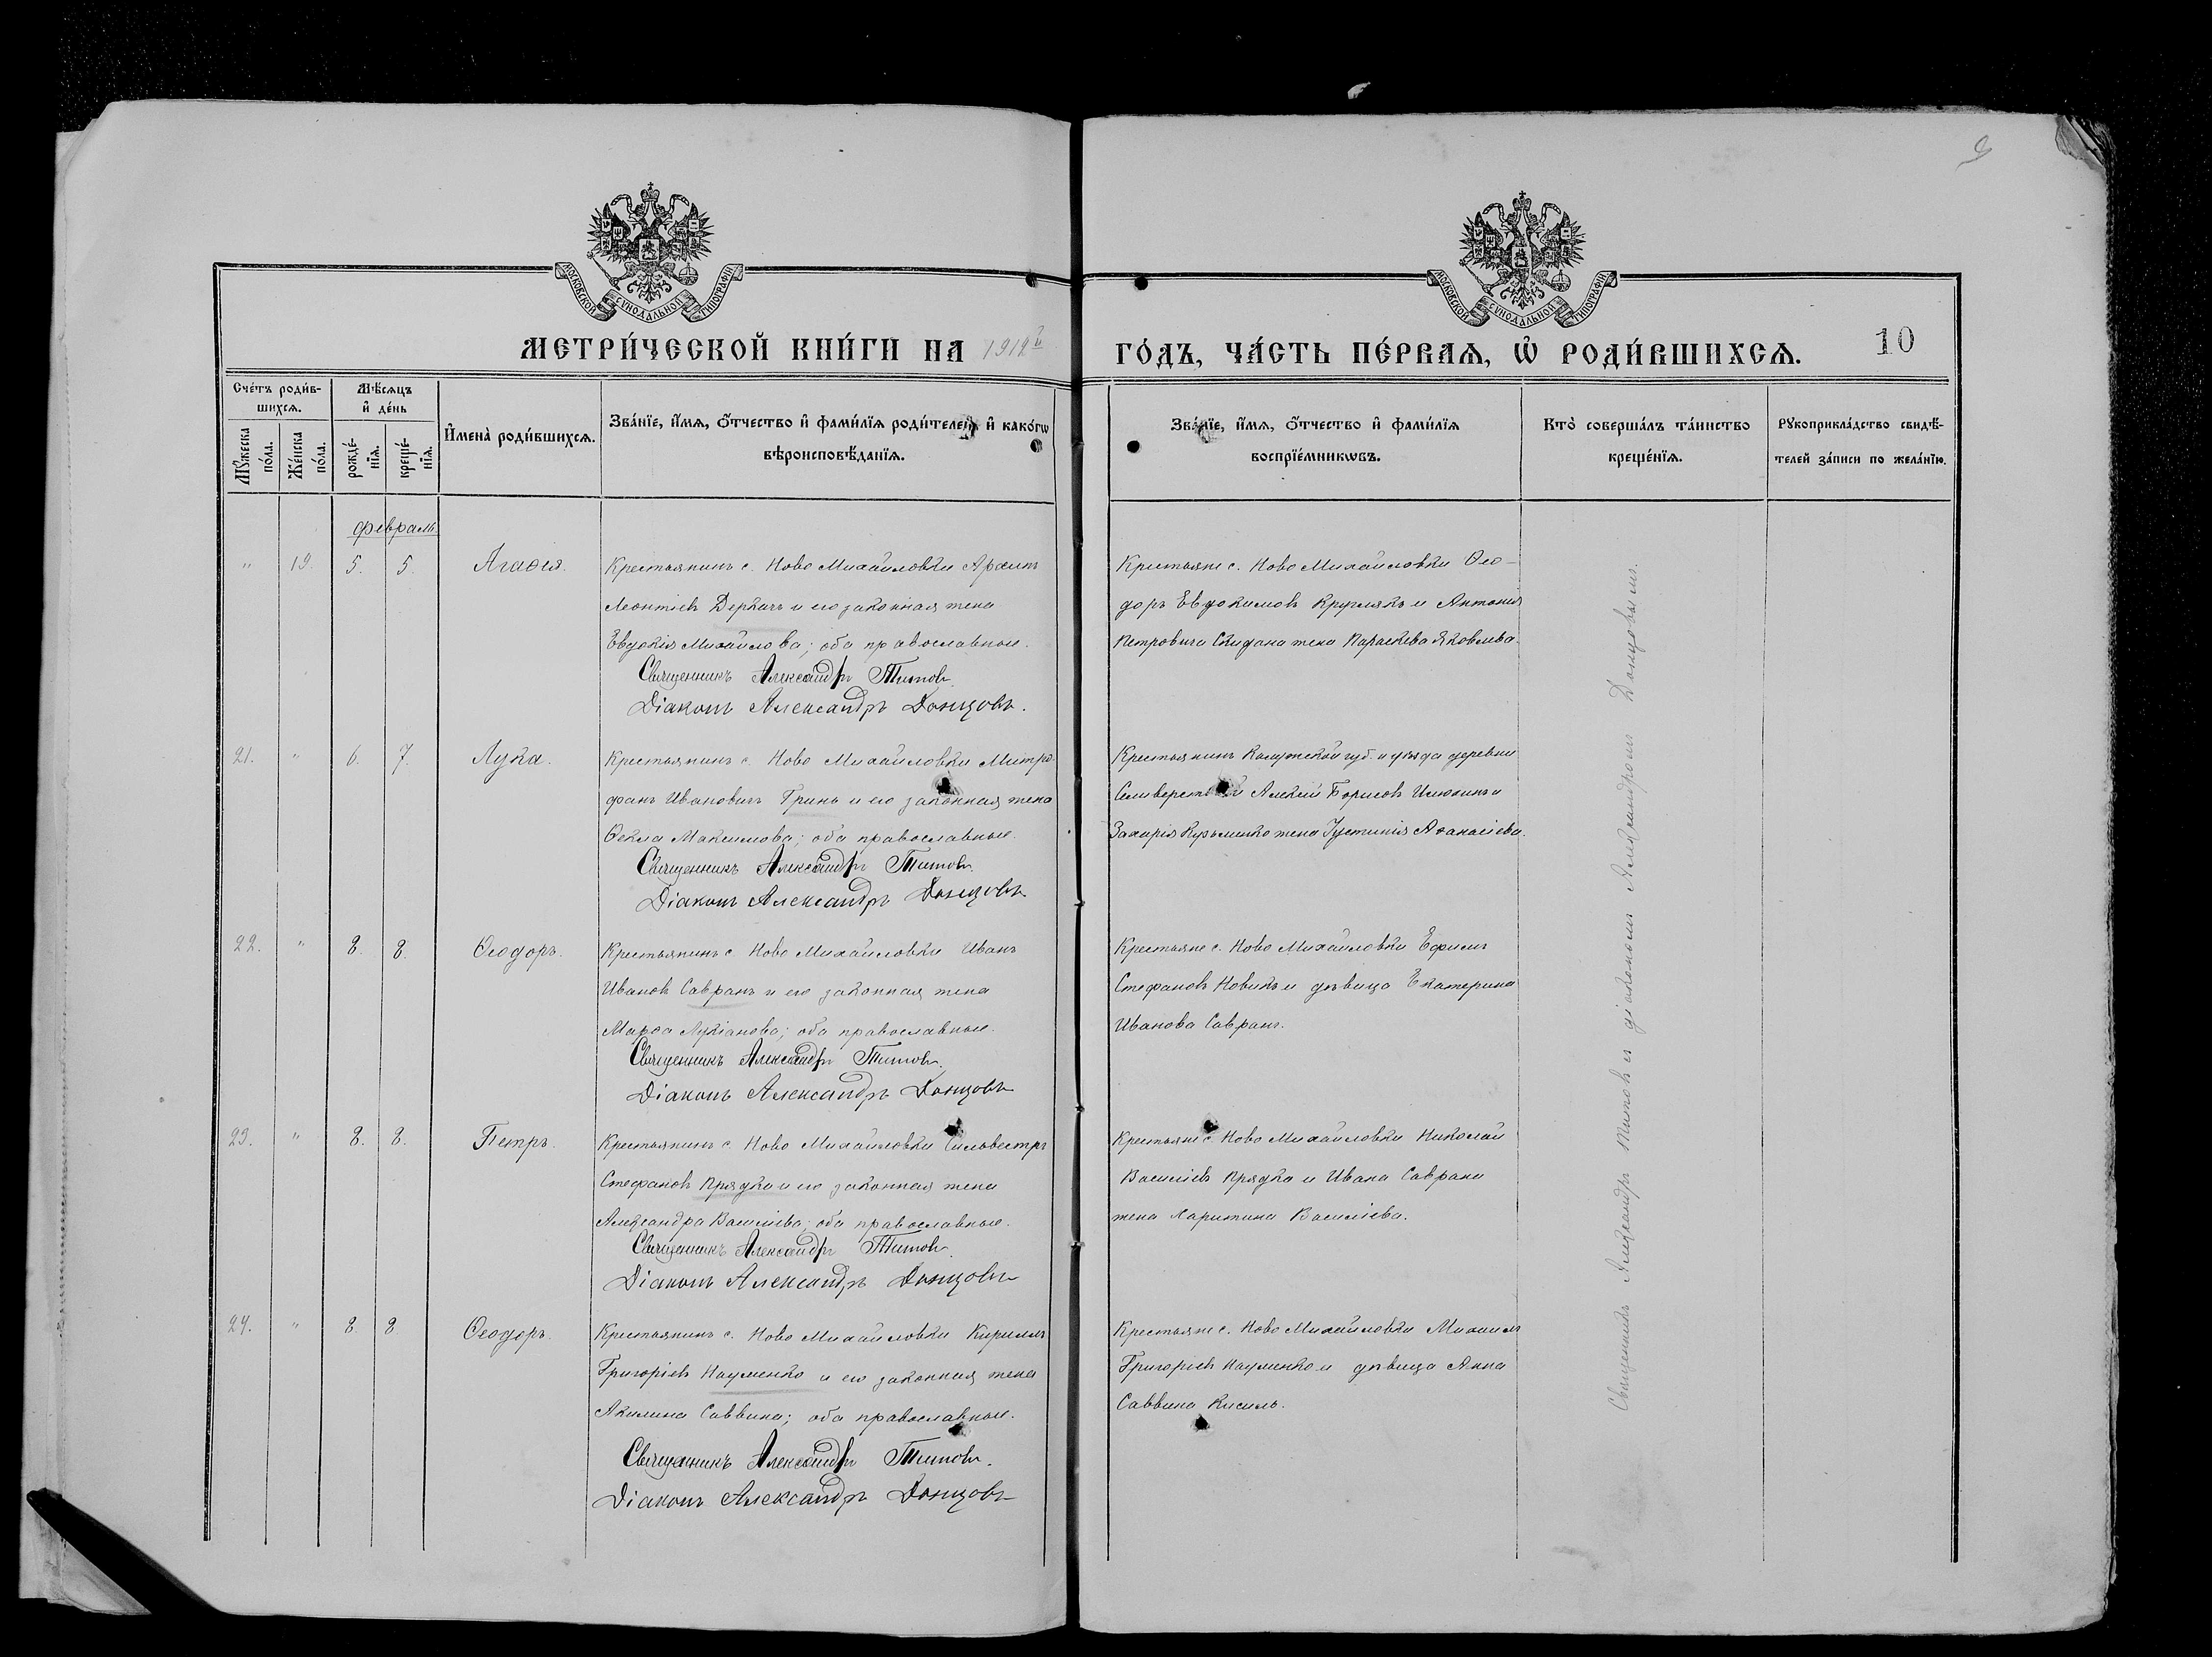 9
МОСКОВСКОЙ СУНОДАЛЬНОЙ ТИПОГРАФІИ
МОСКОВСКОЙ СУНОДАЛЬНОЙ ТИПОГРАФІИ
МЕТРИ́ЧЕСКОЙ КНИ́ГИ НА 1912й ГО́ДЪ, ЧА́СТЬ ПЕ́РВАѦ, Ѡ҆ РОДИ́ВШИХСѦ.
10
Сче́тъ роди́в-
шихсѧ.
Мѣ́сѧцъ
и҆ де́нь
Мꙋ́жеска
по́ла.
Же́нска
по́ла.
рожде́-
нїѧ.
креще́-
нїѧ.
И҆мена̀ роди́вшихсѧ.
Зва́нїе, и҆́мѧ, ѻ҆́тчество и҆ фами́лїѧ роди́телей, и҆ како́гѡ
вѣроисповѣ́данїѧ.
Зва́нїе, и҆́мѧ, ѻ҆́тчество и҆ фами́лїѧ
воспрїе́мникѡвъ.
Кто̀ соверша́лъ та́инство
креще́нїѧ.
Рꙋкоприкла́дство свидѣ́-
телей за́писи по жела́нїю.
февраль.
" 19. 5. 5. Агаѳія.
Крестьянинъ с. Ново Михайловки Архипъ
Леонтіевъ Деркачъ и его законная жена
Евдокія Михайлова; оба православные.
Священникъ Александръ Титовъ
Діаконъ Александръ Донцовъ.
Крестьяне с. Ново Михайловки Ѳео-
доръ Евдокимовъ Круглякъ и Антонія
Петровича Скидана жена Параскева Яковлева.
21. " 6. 7. Лука.
Крестьянинъ с. Ново Михайловки Митро-
фанъ Ивановичъ Гринь и его законная жена
Ѳекла Максимова; оба православные.
Священникъ Александръ Титовъ
Діаконъ Александръ Донцовъ
Крестьянинъ Калужской губ. и уѣзда деревни
Алексій Борисовъ Илюхинъ и
Захарія Кузьменко жена Іустинія Аѳанасіева.
22. " 8. 8. Ѳеодоръ.
Крестьянинъ с. Ново Михайловки Иванъ
Ивановъ Савранъ и его законная жена
Марѳа Лукіанова; оба православные.
Священникъ Александръ Титовъ
Діаконъ Александръ Донцовъ
Крестьяне с. Ново Михайловки Ефимъ
Стефановъ Новикъ и дѣвица Екатерина
Иванова Савранъ.
23. " 8. 8. Петръ.
Крестьянинъ с. Ново Михайловки Сильвестръ
Стефановъ Прядка и его законная жена
Александра Василіева; оба православные.
Священникъ Александръ Титовъ
Діаконъ Александръ Донцовъ
Крестьяне с. Ново Михайловки Николай
Василіевъ Прядка и Ивана Саврана
жена Харитина Василіева.
24. " 8. 8. Ѳеодоръ.
Крестьянинъ с. Ново Михайловки Кириллъ
Григоріевъ Науменко и его законная жена
Акилина Саввина; оба православные.
Священникъ Александръ Титовъ.
Діаконъ Александръ Донцовъ
Крестьяне с. Ново Михайловки Михаилъ
Григоріевъ Науменко и дѣвица Анна
Саввина Кисиль.
Священникъ Александръ Титовъ съ діакономъ Александромъ Донцовымъ.